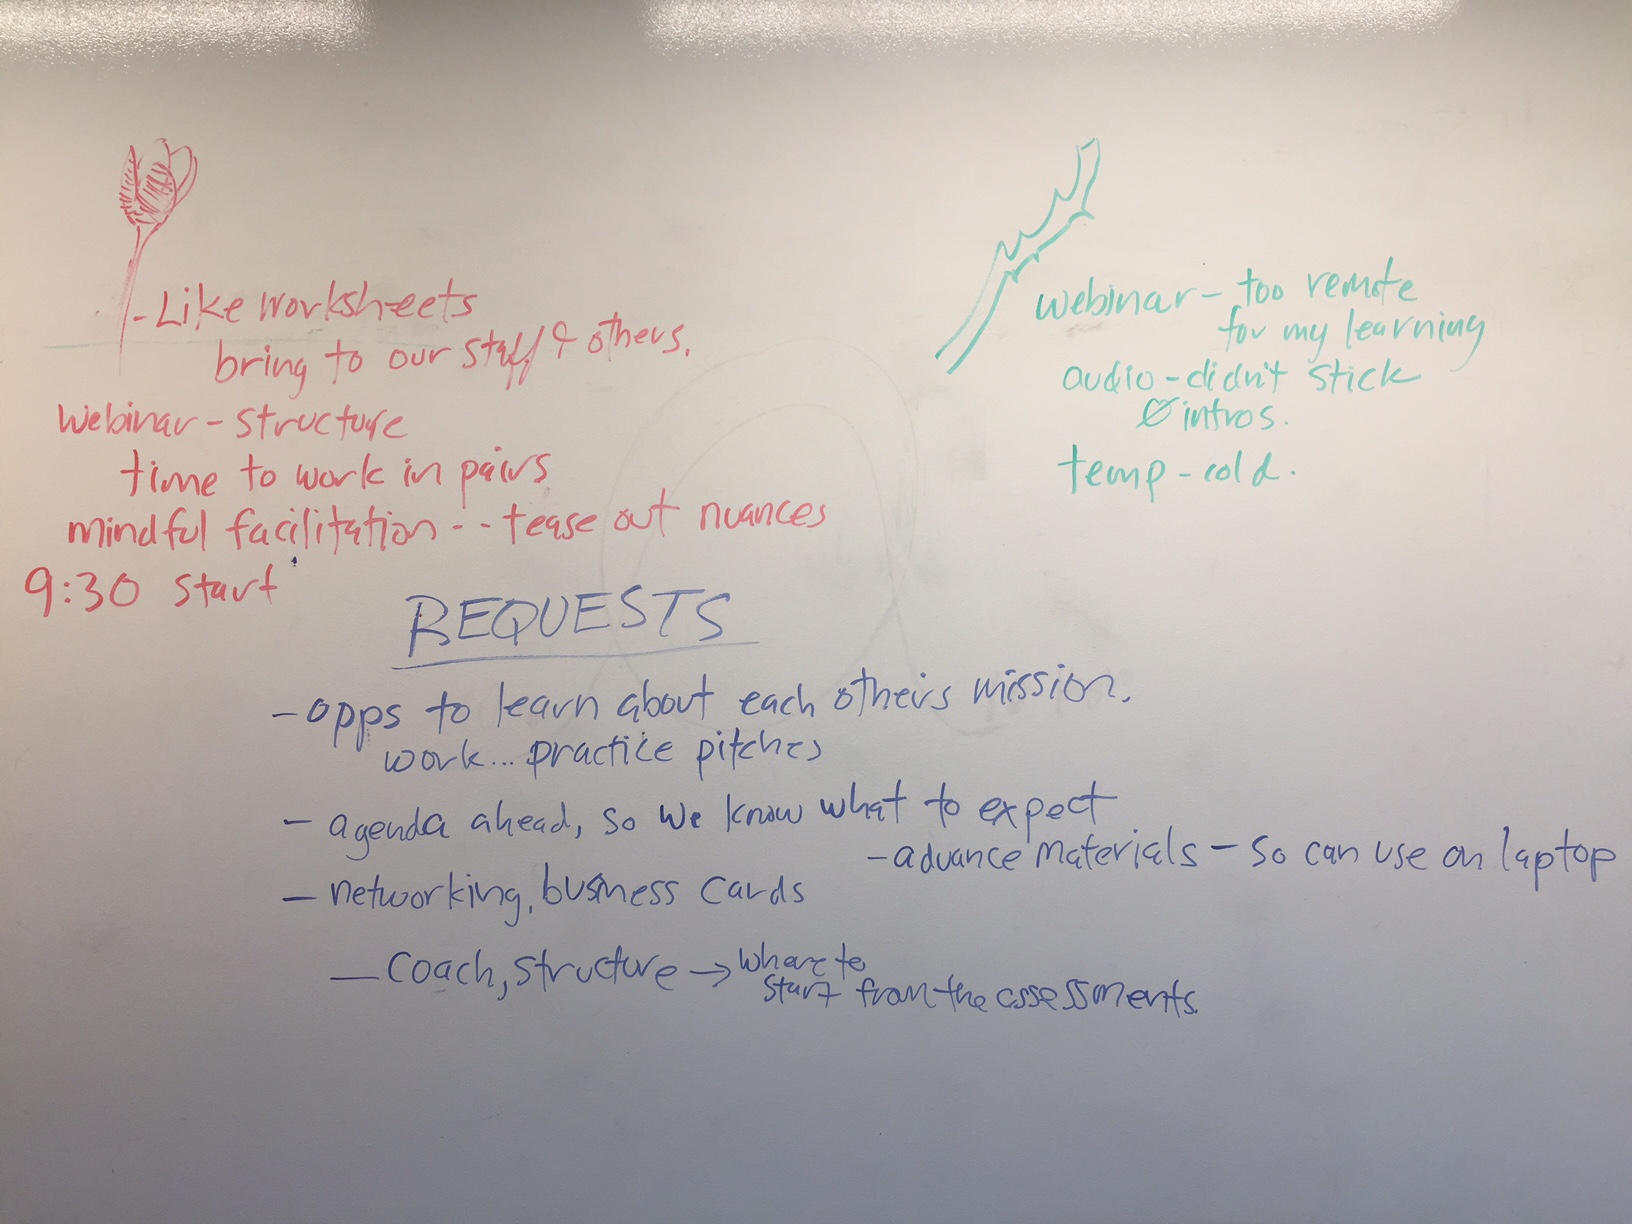 - Like worksheets
bring to our staff & others.
webinar - structure
time to work in pairs
mindful facilitation -- tease out nuances
9:30 start
webinar - too remote
for my learning
audio - didn't stick
Ø intros.
temp - cold.
REQUESTS
- opps to learn about each others mission.
work... practice pitches
- agenda ahead, so we know what to expect
- advance materials - so can use on laptop
- networking, business cards
- Coach, structure → where to
start from the assessments.